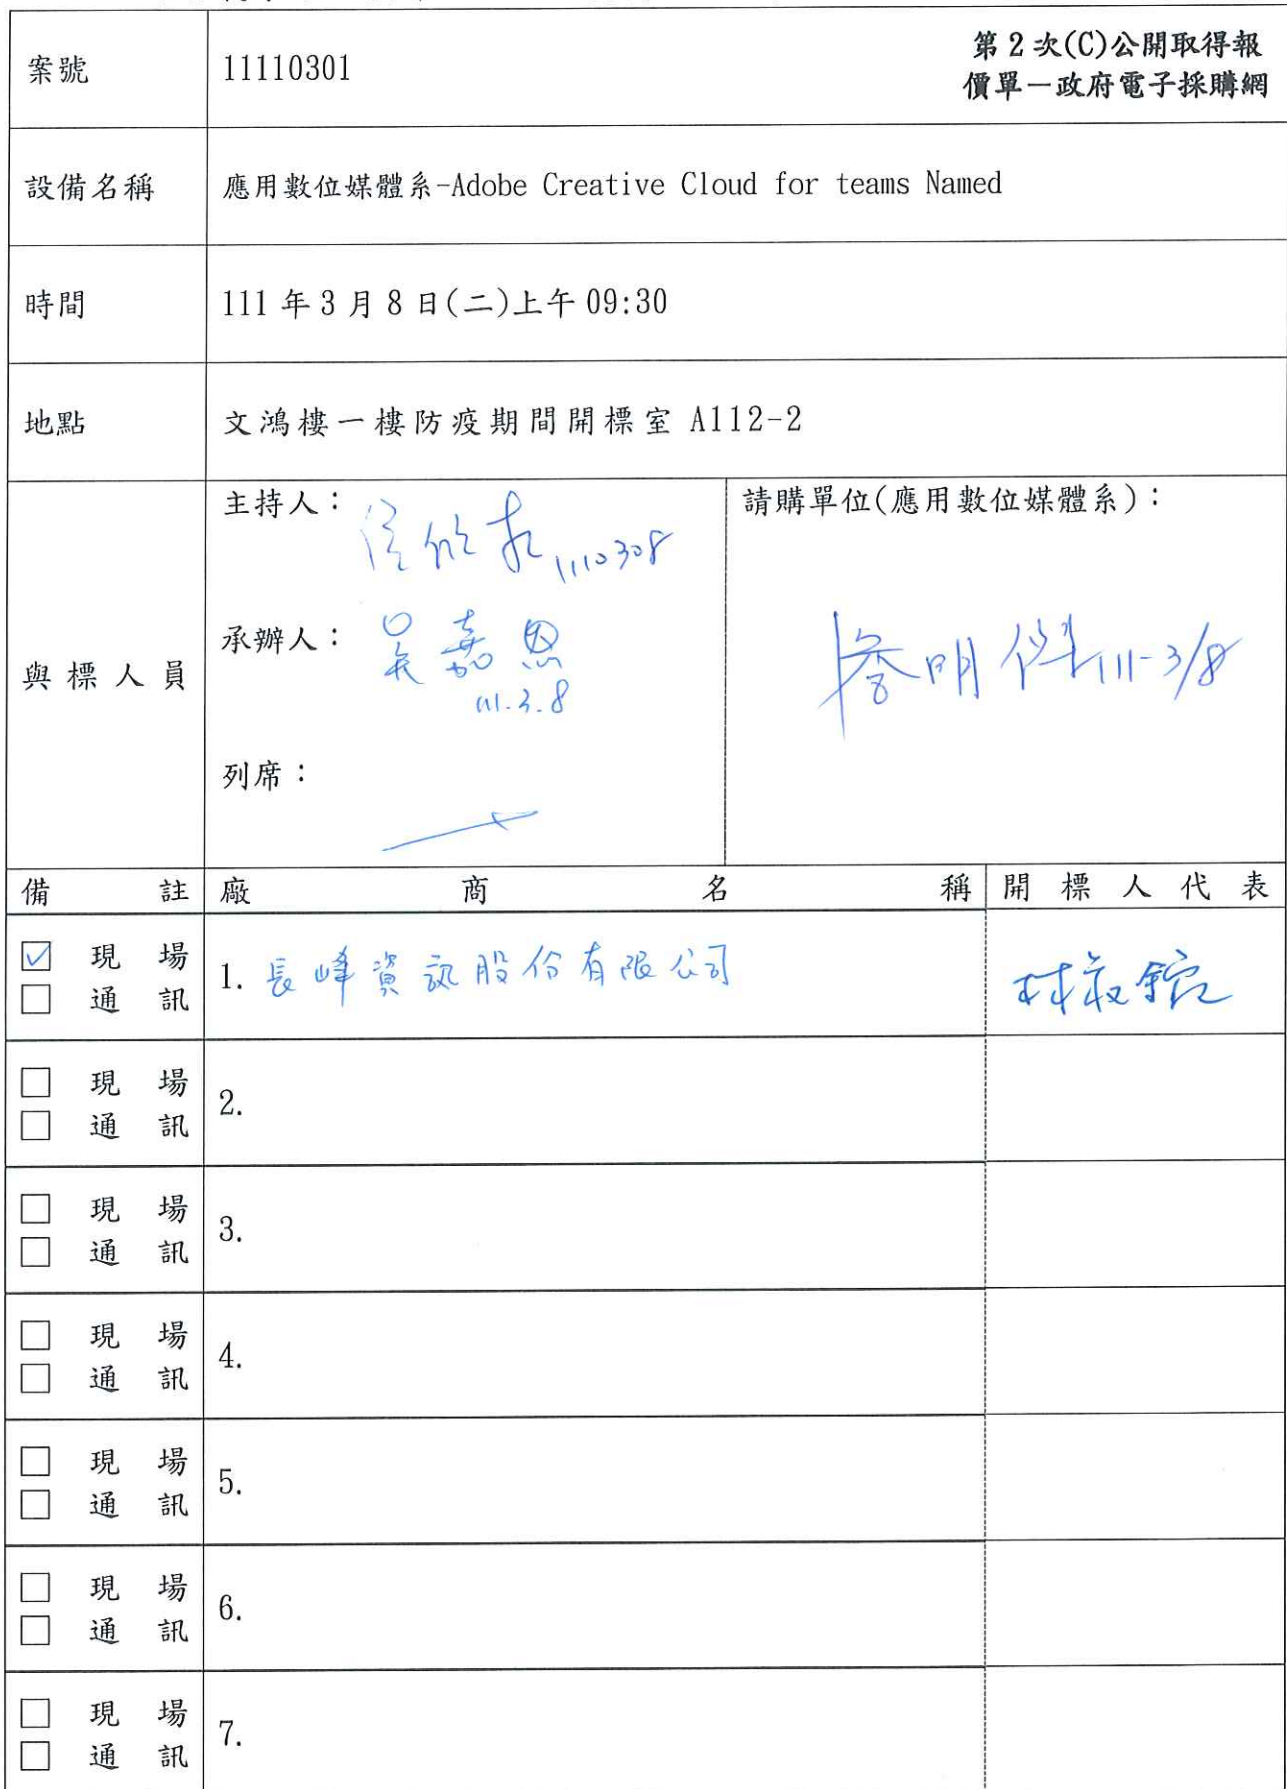 案號
11110301
第2次(C)公開取得報
價單－政府電子採購網
設備名稱
應用數位媒體系-Adobe Creative Cloud for teams Named
時間
111年3月8日(二)上午09:30
地點
文鴻樓一樓防疫期間開標室 A112-2
與標人員
主持人：
1110308
承辦人：吳嘉恩
111.3.8
列席：
請購單位(應用數位媒體系)：
明 111-3/8
備註 廠商名稱 開標人代表
☑ 現場
☐ 通訊
1. 長峰資訊股份有限公司
林
☐ 現場
☐ 通訊
2.
☐ 現場
☐ 通訊
3.
☐ 現場
☐ 通訊
4.
☐ 現場
☐ 通訊
5.
☐ 現場
☐ 通訊
6.
☐ 現場
☐ 通訊
7.